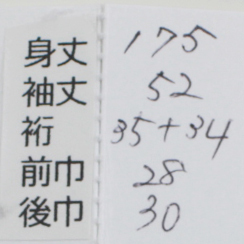 身丈 175
袖丈 52
裄 35+34
前巾 28
後巾 30